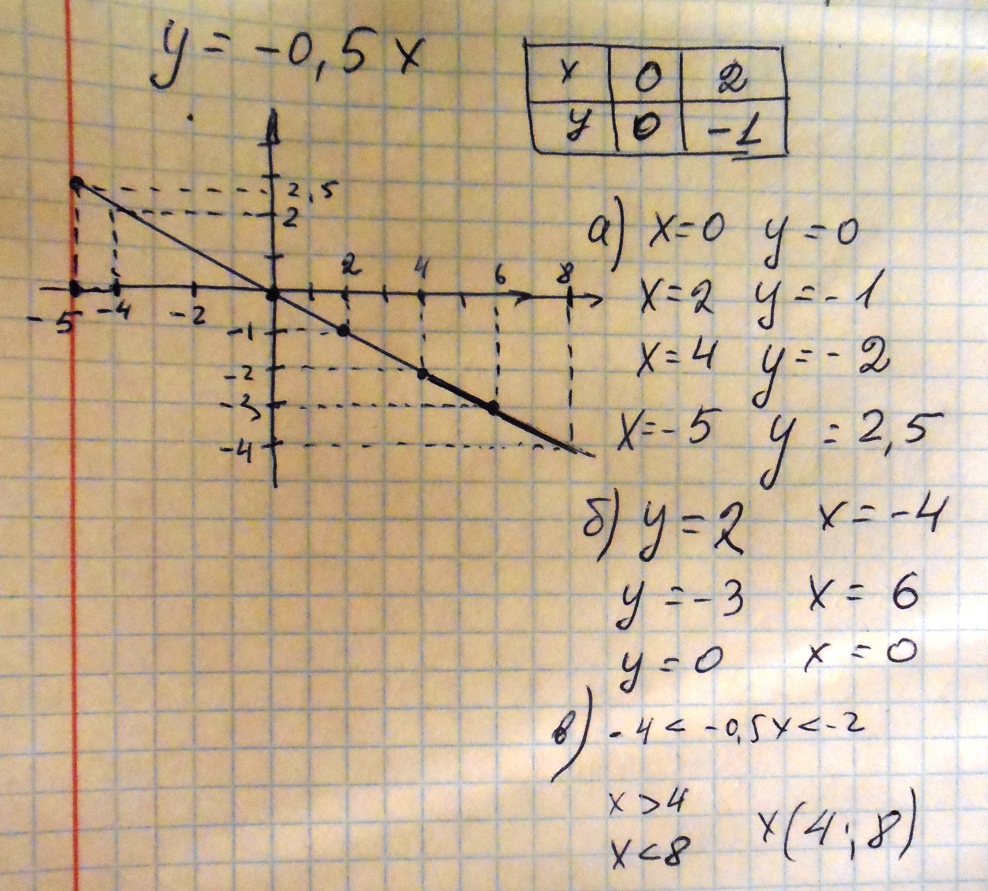 y = -0,5 x
x 0 2
y 0 -1
2,5
2
2 4 6 8
-5 -4 -2
-1
-2
-3
-4
а) x=0 y=0
x=2 y=-1
x=4 y=-2
x=-5 y=2,5
б) y=2 x=-4
y=-3 x=6
y=0 x=0
в) -4< -0,5x<-2
x>4
x<8 x(4;8)